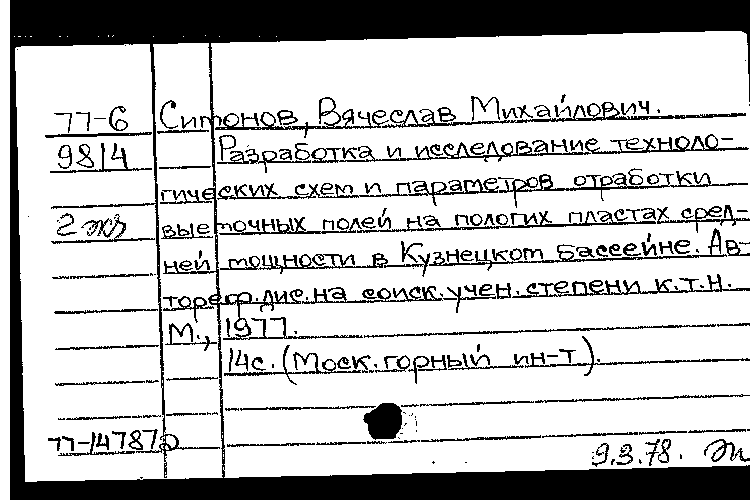 77-6 Симонов, Вячеслав Михайлович.
9814 Разработка и исследование техноло-
гических схем и параметров отработки
2 экз выемочных полей на пологих пластах сред-
ней мощности в Кузнецком бассейне. Ав-
тореф.дис.на соиск.учен.степени к.т.н.
М., 1977.
14с. (Моск.горный ин-т).
77-14787
9.3.78.